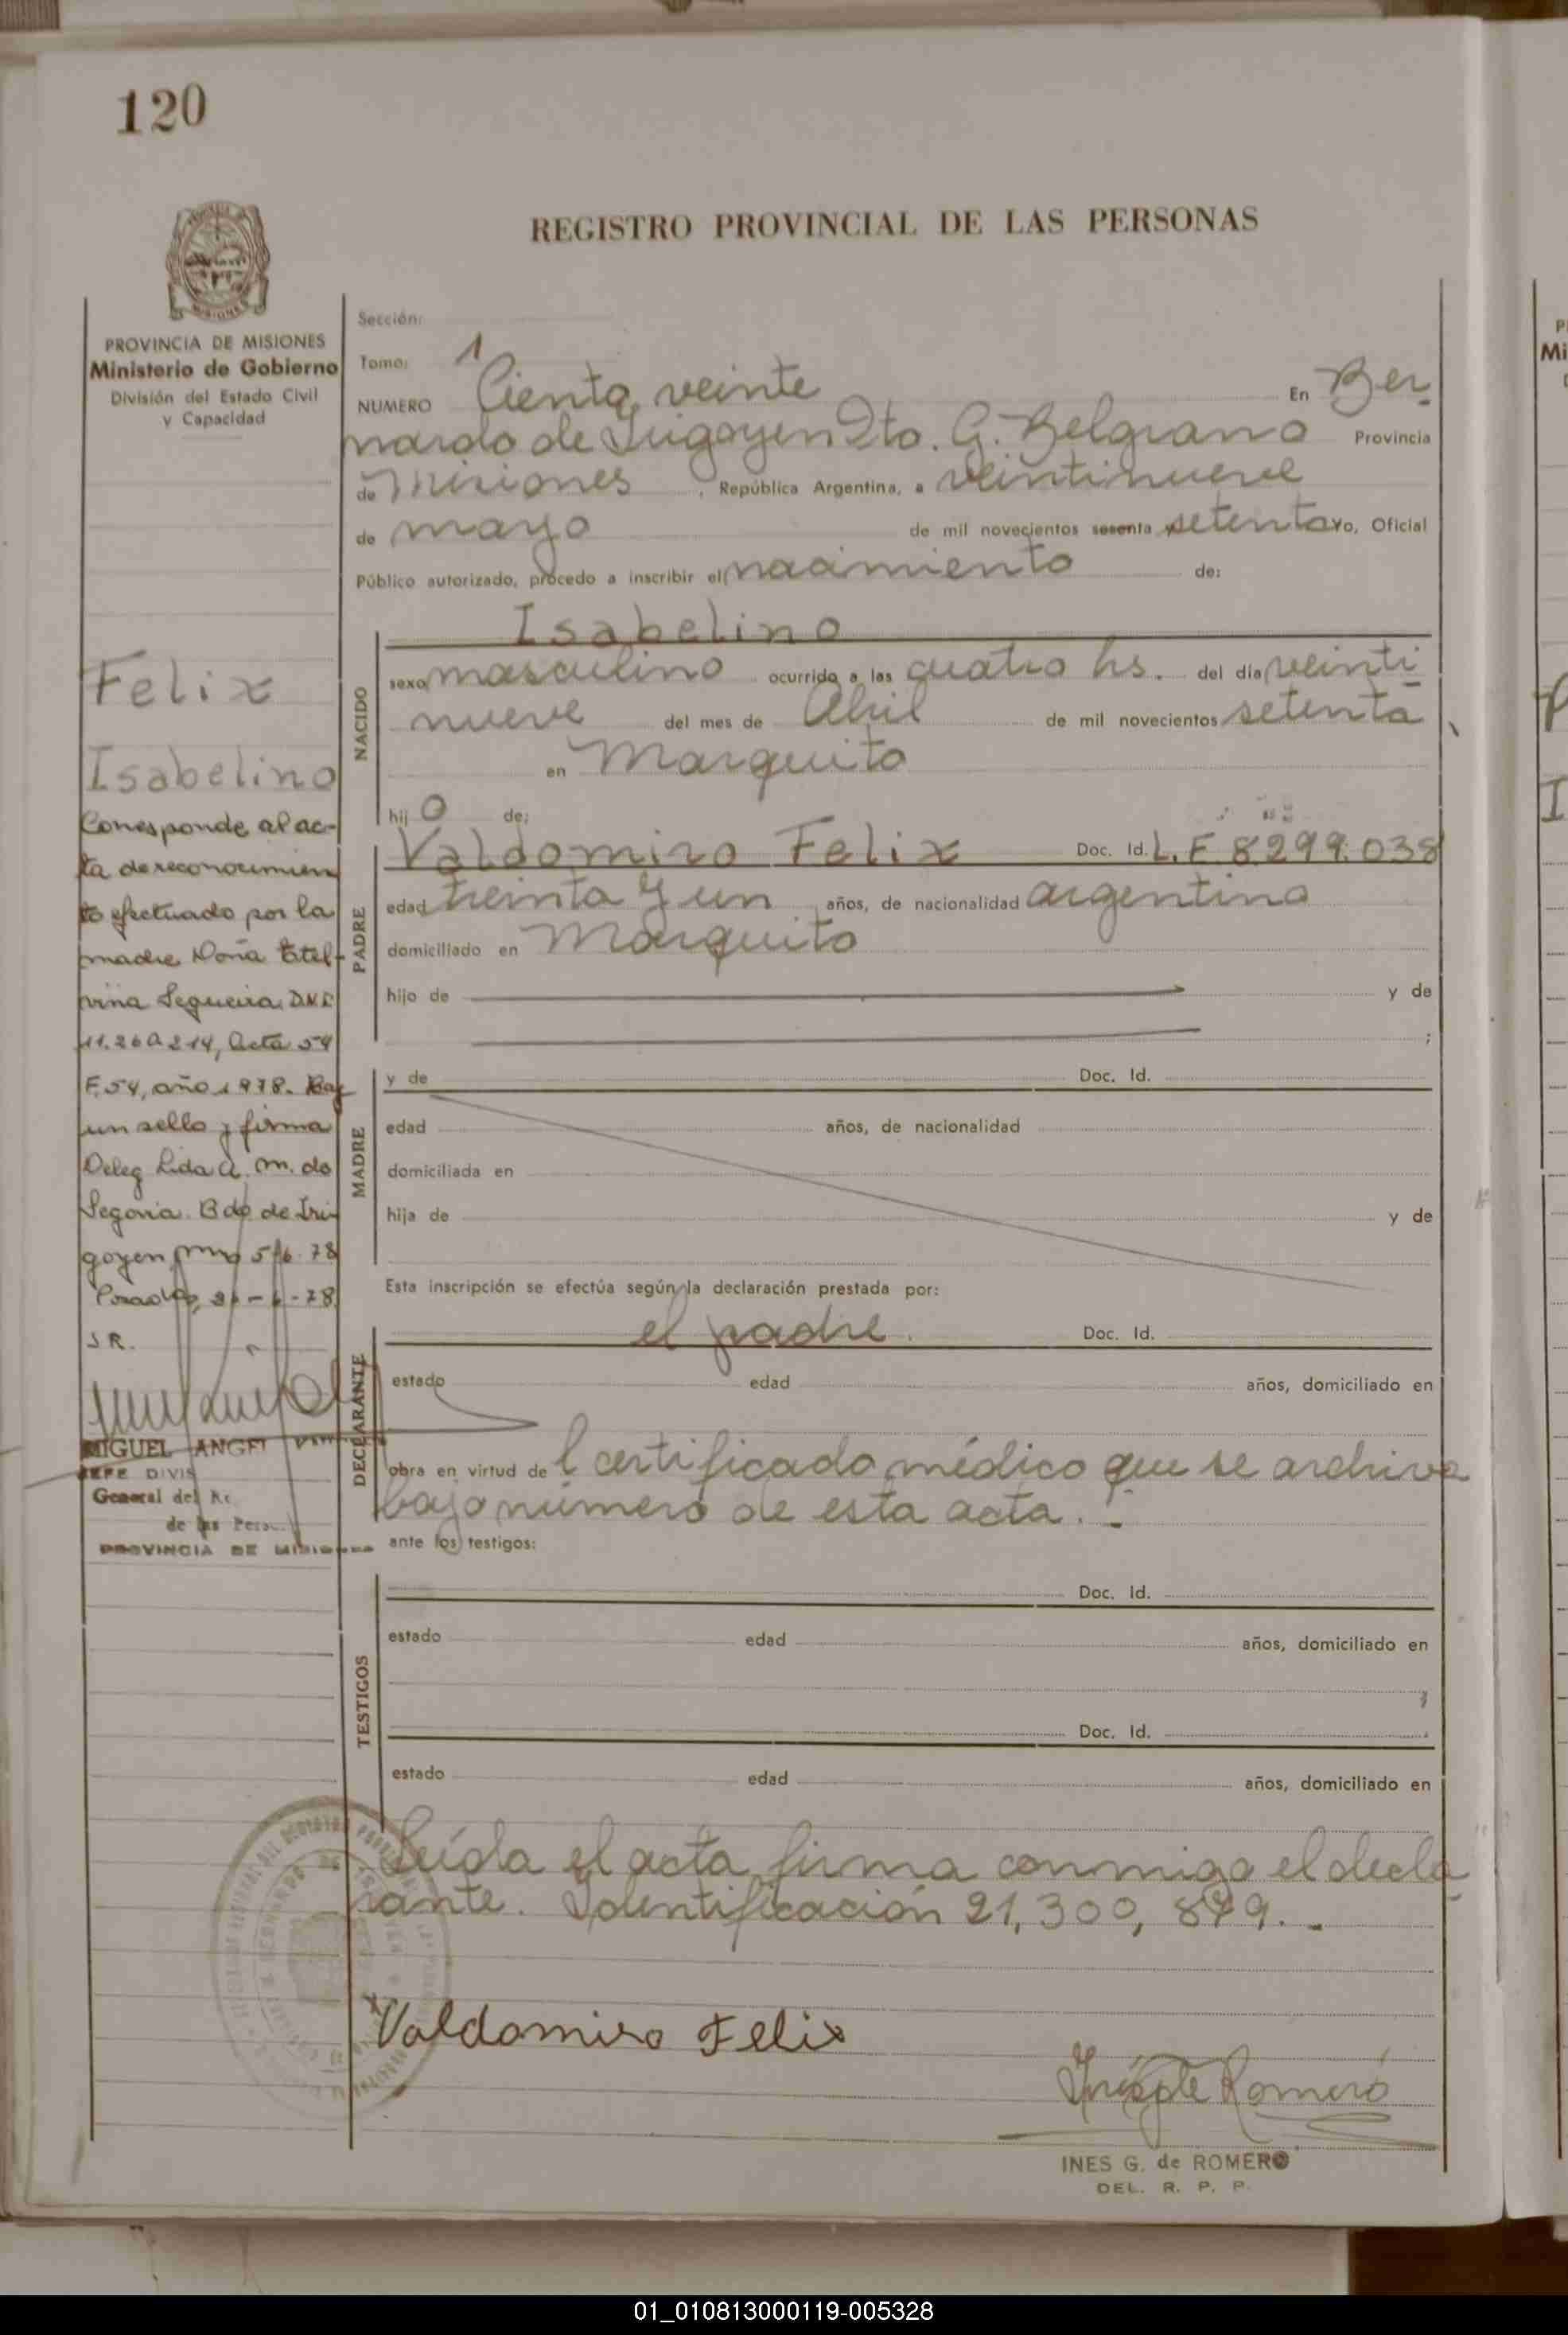 120
REGISTRO PROVINCIAL DE LAS PERSONAS
PROVINCIA DE MISIONES
Ministerio de Gobierno
División del Estado Civil
y Capacidad
Felix
Isabelino
Corresponde al ac-
ta de reconocimien
to efectuado por la
madre Doña Etel-
vina Segueira D.N.I.
11.260.214, Acta 54
F.54, año 1978. Hay
un sello y firma
Deleg Lida A. M. de
Segovia. Bdo de Iri-
goyen 5/6-78
Posadas,
S R.
MIGUEL ANGEL
JEFE DIVIS
General del
de las Perso
PROVINCIA DE MISIONES
Sección:
Tomo: 1
NUMERO Ciento veinte En Ber-
nardo de Irigoyen Dto. G. Belgrano Provincia
de Misiones, República Argentina, a veintinueve
de mayo de mil novecientos sesenta y setenta yo, Oficial
Público autorizado, procedo a inscribir el nacimiento de:
NACIDO
Isabelino
sexo masculino ocurrido a las cuatro hs. del día veinti-
nueve del mes de Abril de mil novecientos setenta
en Marquito
hij o de:
PADRE
Valdomiro Felix Doc. Id. L.E 8.299.038
edad treinta y un años, de nacionalidad argentino
domiciliado en Marquito
hijo de y de
;
MADRE
y de Doc. Id.
edad años, de nacionalidad
domiciliada en
hija de y de
Esta inscripción se efectúa según la declaración prestada por:
DECLARANTE
el padre. Doc. Id.
estado edad años, domiciliado en
obra en virtud de l certificado médico que se archiva
bajo número de esta acta. -
ante los testigos:
TESTIGOS
Doc. Id.
estado edad años, domiciliado en
;
Doc. Id.
estado edad años, domiciliado en
Leída el acta firma conmigo el decla-
rante. Identificación 21,300,879. -
Valdomiro Felix
Inés G de Romero
INES G. de ROMERO
DEL. R. P. P.
01_010813000119-005328